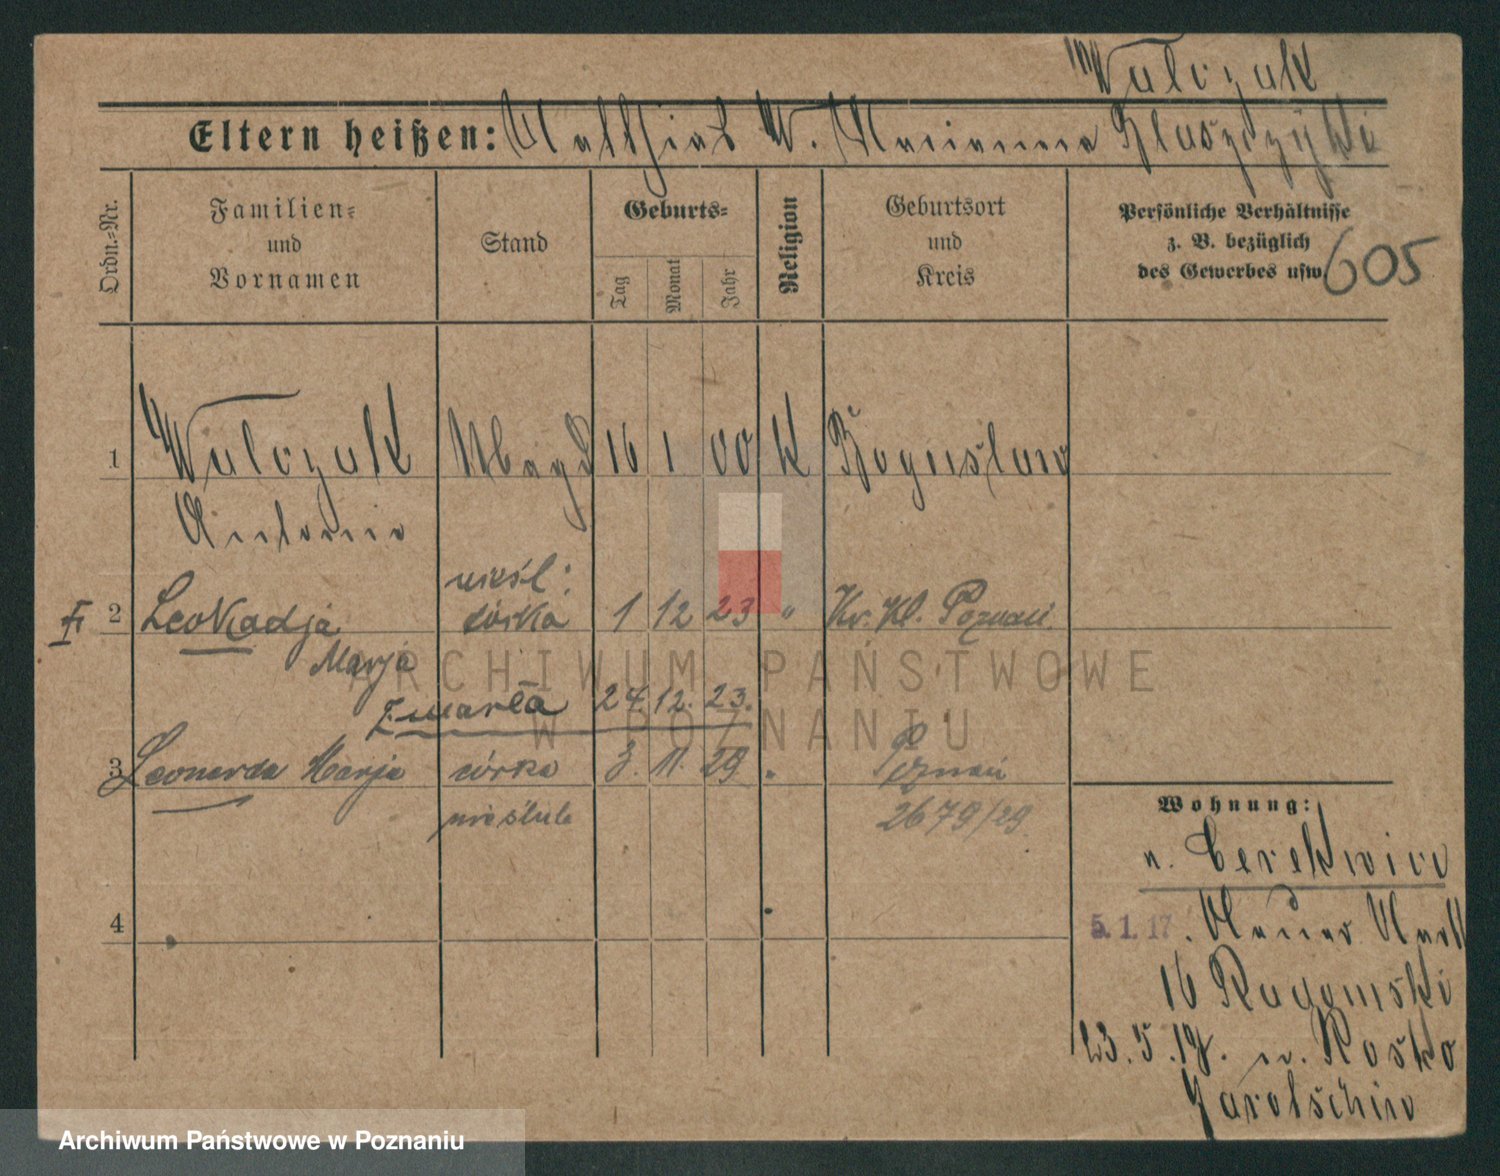 Walczak
Eltern heißen: Matthias W. Marianna
Ordn.-Nr.
Familien-
und
Vornamen
Stand
Geburts-
Tag
Monat
Jahr
Religion
Geburtsort
und
Kreis
Persönliche Verhältnisse
z. B. bezüglich
des Gewerbes usw.
605
1 Walczak Magd 16 1 00 K Boguslaw
Antonie
nieśl:
2 Leokadja córka 1 12 23 " Kr. Kl. Poznań
Marja
zmarła 24. 12. 23.
3 Leonarda Marja córka 3. 11. 29 " Poznań
nieślub 2679/29
4
Wohnung:
n. Cerekwice
5.1.17. Neuer Markt
16 Radomski
23.5.19. n.
Jarotschin
ARCHIWUM PAŃSTWOWE
W POZNANIU
Archiwum Państwowe w Poznaniu